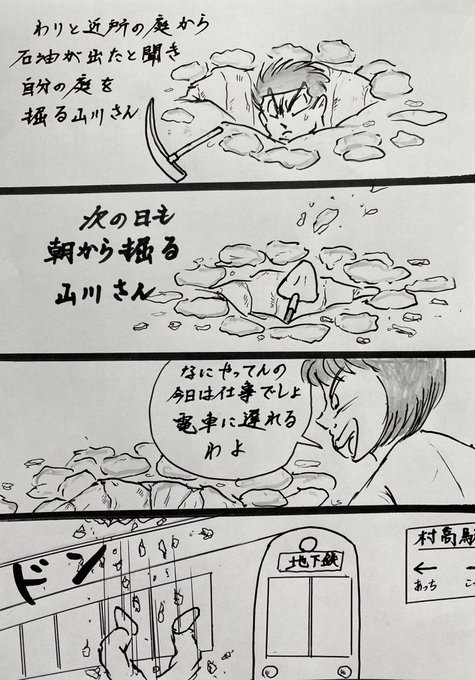 わりと近所の庭から
石油が出たと聞き
自分の庭を
掘る山川さん
次の日も
朝から掘る
山川さん
なにやってんの
今日は仕事でしょ
電車に遅れる
わよ
ドン
地下鉄
村高
← ←
あっち こ